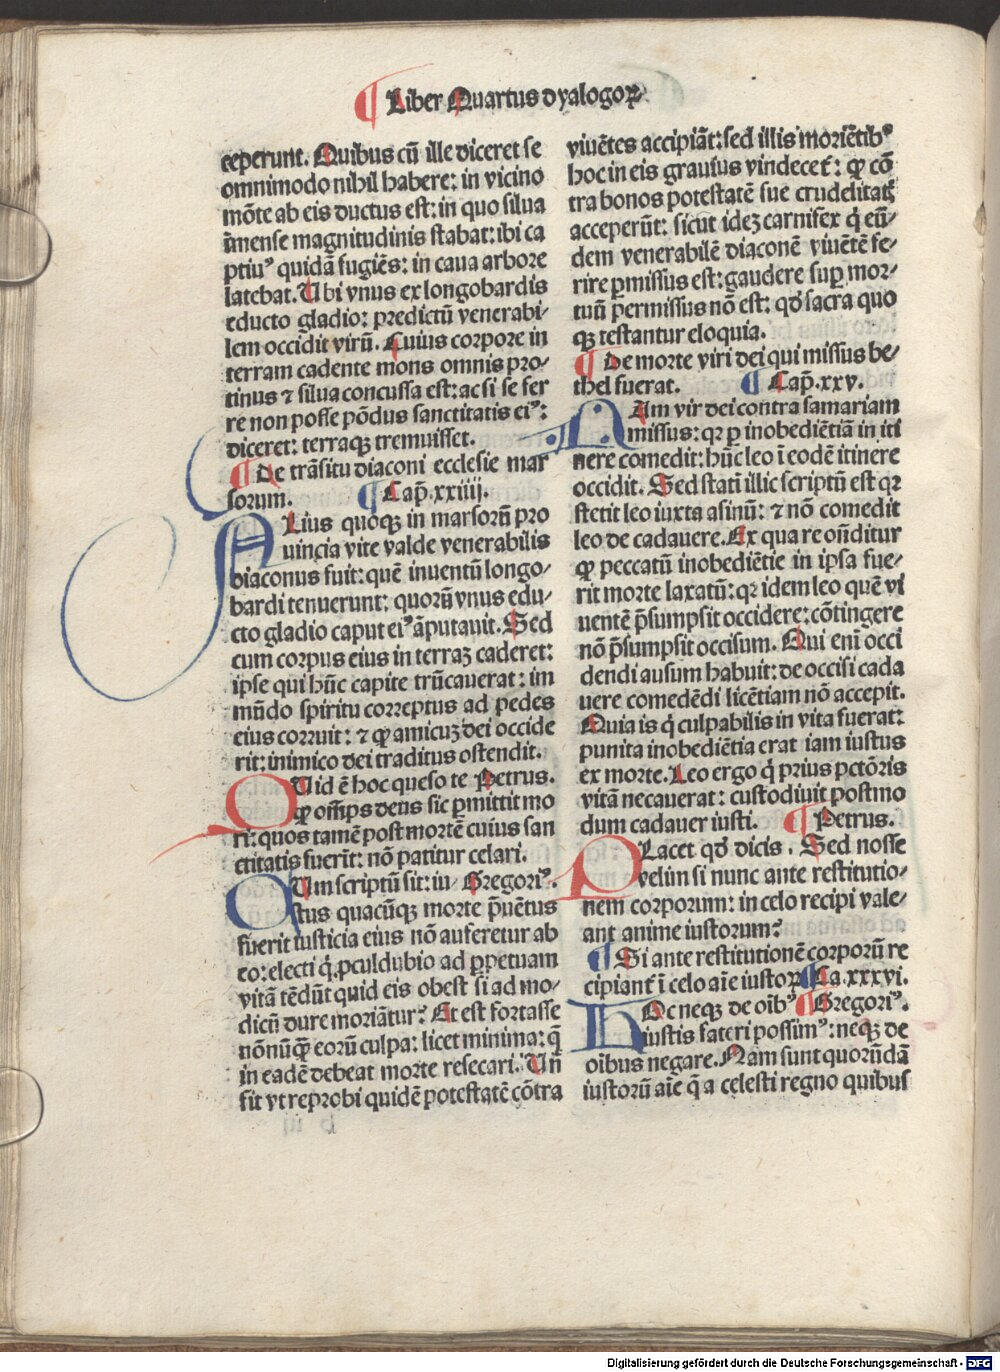 ¶ Liber Quartus dyalogoꝝ
ceperunt. Quibus cū ille diceret se
omnimodo nihil habere: in vicino
mōte ab eis ductus est: in quo silua
īmense magnitudinis stabat: ibi ca
ptiuꝰ quidā fugiēs: in caua arbore
latebat. Ubi vnus ex longobardis
educto gladio: predictū venerabi-
lem occidit virū. Cuius corpore in
terram cadente mons omnis pro-
tinus ⁊ silua concussa est: ac si se fer
re non posse pōdus sanctitatis eiꝰ:
diceret: terraqꝫ tremuisset.
¶ De trāsitu diaconi ecclesie mar
sorum. ¶ Cap̄.xxiiij.
ALius quoqꝫ in marsorū pro
uincia vite valde venerabilis
diaconus fuit: quē inuentū longo-
bardi tenuerunt: quorū vnus edu-
cto gladio caput eiꝰ āputauit. Sed
cum corpus eius in terraꝫ caderet:
ipse qui hūc capite trūcauerat: im
mūdo spiritu correptus ad pedes
eius corruit: ⁊ ꝙ amicuꝫ dei occide
rit: inimico dei traditus ostendit.
QUid ē hoc queso te Petrus.
ꝙ oīn̄ps deus sic ꝑmittit mo
ri: quos tamē post mortē cuius san
ctitatis fuerit: nō patitur celari.
CUm scriptū sit: iu- Gregoriꝰ.
stus quacūqꝫ morte p̄uētus
fuerit iusticia eius nō auferetur ab
eo: electi q̇ ꝓculdubio ad ꝑpetuam
vitā tēdūt quid eis obest si ad mo-
dicū dure moriātur? Et est fortasse
nōnūꝙ̄ eorū culpa: licet minima: q̄
in eadē debeat morte resecari. Un̄
fit vt reprobi quidē potestatē cōtra
viuētes accipiāt: sed illis moriētibꝰ
hoc in eis grauius vindecet̄: ꝙ cō
tra bonos potestatē sue crudelitatꝭ
acceperūt: sicut ideꝫ carnifex q̇ eū-
dem venerabilē diaconē viuētē fe-
rire ꝑmissus est: gaudere suꝑ mor-
tuū permissus nō est: qd̓ sacra quo
qꝫ testantur eloquia.
¶ De morte viri dei qui missus be-
thel fuerat. ¶ Cap̄.xxv.
NAm vir dei contra samariam
missus: qꝛ ꝑ inobediētiā in iti
nere comedit: hūc leo ī eodē itinere
occidit. Sed statī illic scriptū est qꝛ
stetit leo iuxta asinū: ⁊ nō comedit
leo de cadauere. Ex qua re on̄ditur
ꝙ peccatū inobediētie in ipsa fue-
rit morte laxatū: qꝛ idem leo quē vi
uentē p̄sumpsit occidere: cōtingere
nō p̄sumpsit occisum. Qui enī occi
dendi ausum habuit: de occisi cada
uere comedēdi licētiam nō accepit.
Quia is q̇ culpabilis in vita fuerat:
punita inobediētia erat iam iustus
ex morte. Leo ergo q̇ prius pctōris
vitā necauerat: custodiuit postmo
dum cadauer iusti. ¶ Petrus.
PLacet qd̓ dicis. Sed nosse
velim si nunc ante restitutio-
nem corporum: in celo recipi vale-
ant anime iustorum?
¶ Si ante restitutionē corporū re
cipiant̄ ī celo aīe iustoꝝ ¶ Ca.xxxvi.
HOc neqꝫ de oībꝰ ¶ Gregoriꝰ.
iustis fateri possimꝰ: neqꝫ de
oībus negare. Nam sunt quorūdā
iustorū aīe q̄ a celesti regno quibus
Digitalisierung gefördert durch die Deutsche Forschungsgemeinschaft - DFG